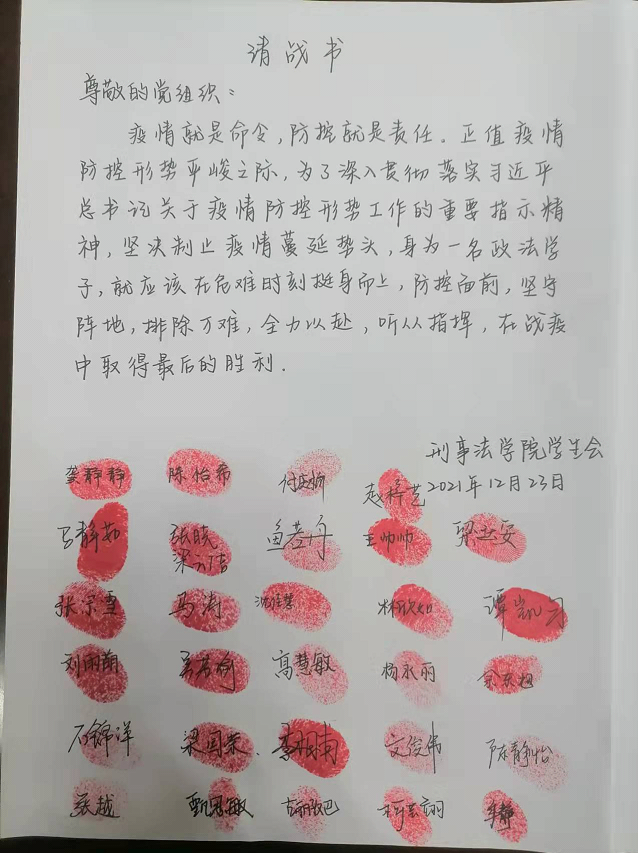 请战书
尊敬的党组织：
疫情就是命令，防控就是责任。正值疫情
防控形势严峻之际，为了深入贯彻落实习近平
总书记关于疫情防控形势工作的重要指示精
神，坚决制止疫情蔓延势头，身为一名政法学
子，就应该在危难时刻挺身而上，防控面前，坚守
阵地，排除万难，全力以赴，听从指挥，在战疫
中取得最后的胜利.
刑事法学院学生会
2021年12月23日
龚静静 陈怡希
吕静茹 张晓 王帅帅
张宗雪 马涛 林欣如 谭凯
刘雨萌 高慧敏 杨永丽
石锦洋 文俊伟 陈静怡
张越